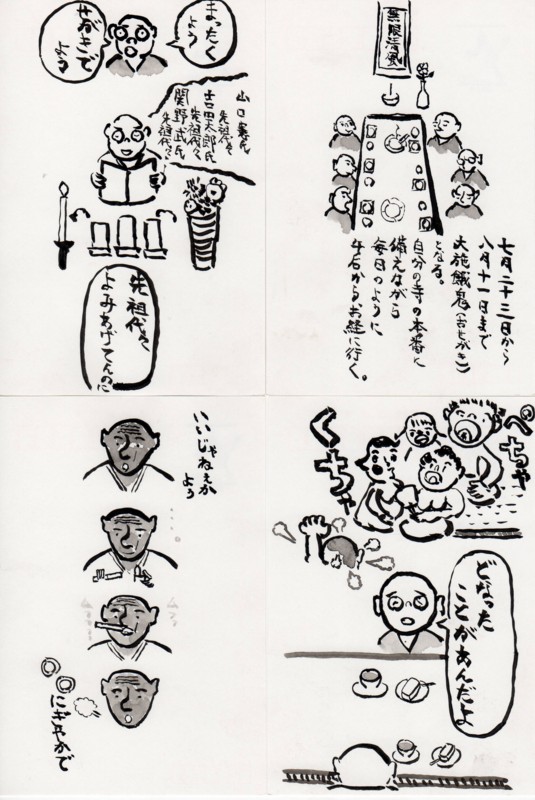 無限清風
七月二十三日から
八月十一日まで
大施餓鬼(おせがき)
となる。
自分の寺の本番に
備えながら
毎日のように
午后からお経に行く。
まったく
よう
せがきで
よう
山口
先祖代々
吉田太郎氏
先祖代々
関野武氏
先祖代々
先祖代々
よみあげてんのに
ぺちゃ
くちゃ
どなった
ことがあんだよ
いいじゃねえか
よう
にぎやかで